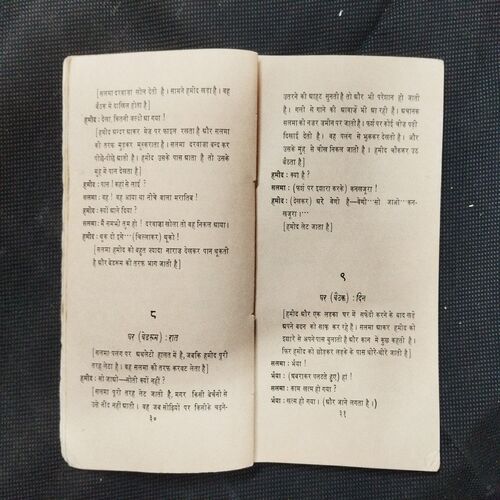 [सलमा दरवाज़ा खोल देती है। सामने हमीद खड़ा है। वह
बैठक में दाख़िल होता है]
हमीद : देखा, कितनी जल्दी आ गया !
[हमीद अन्दर आकर मेज़ पर फाइल रखता है और सलमा
की तरफ़ मुड़कर मुस्कराता है। सलमा दरवाज़ा बन्द कर
पीछे-पीछे आती है। हमीद उसके पास आता है तो उसके
मुंह में पान देखता है]
हमीद : पान ! कहां से लाई ?
सलमा : वह ! वह आया था नीचे वाला मरातिब !
हमीद : क्यों आने दिया ?
सलमा : मैं समझी तुम हो ! दरवाज़ा खोला तो वह निकल आया।
हमीद : थूक दो इसे ··· (चिल्लाकर) थूको !
[सलमा हमीद को बहुत ज़्यादा नाराज़ देखकर पान थूकती
है और बेडरूम की तरफ़ भाग जाती है]
८
घर (बेडरूम) : रात
[सलमा पलंग पर अधलेटी हालत में है, जबकि हमीद पूरी
तरह लेटा है। वह सलमा की तरफ़ करवट लेता है]
हमीद : सो जाओ—सोती क्यों नहीं ?
[सलमा पूरी तरह लेट जाती है, मगर किसी बेचैनी से
उसे नींद नहीं आती। वह जब सीढ़ियों पर किसीके चढ़ने-
३०
उतरने की आहट सुनती है तो और भी परेशान हो जाती
है। गली से गाने की आवाज़ें भी आ रही हैं। अचानक
सलमा की नज़र ज़मीन पर जाती है। फ़र्श पर कोई चीज़ पड़ी
दिखाई देती है। वह पलंग से झुककर देखती है। और
उसके मुंह से चीख निकल जाती है। हमीद चौंककर उठ
बैठता है]
हमीद : क्या है ?
सलमा : (फ़र्श पर इशारा करके) कनखजूरा !
हमीद : (देखकर) अरे वेणी है—वेणी ··· सो जाओ ··· कन-
खजूरा। ···
[हमीद लेट जाता है]
९
घर (बैठक) : दिन
[हमीद और एक लड़का घर में सफ़ेदी करने के बाद खड़े
अपने बदन को साफ़ कर रहे हैं। सलमा आकर हमीद को
इशारे से अपने पास बुलाती है और कान में कुछ कहती है।
फिर हमीद को छोड़कर लड़के के पास धीरे-धीरे जाती है]
सलमा : भैया !
भैया : (घबराकर पलटते हुए) हां !
सलमा : काम ख़त्म हो गया ?
भैया : ख़त्म हो गया। (और जाने लगता है।)
३१